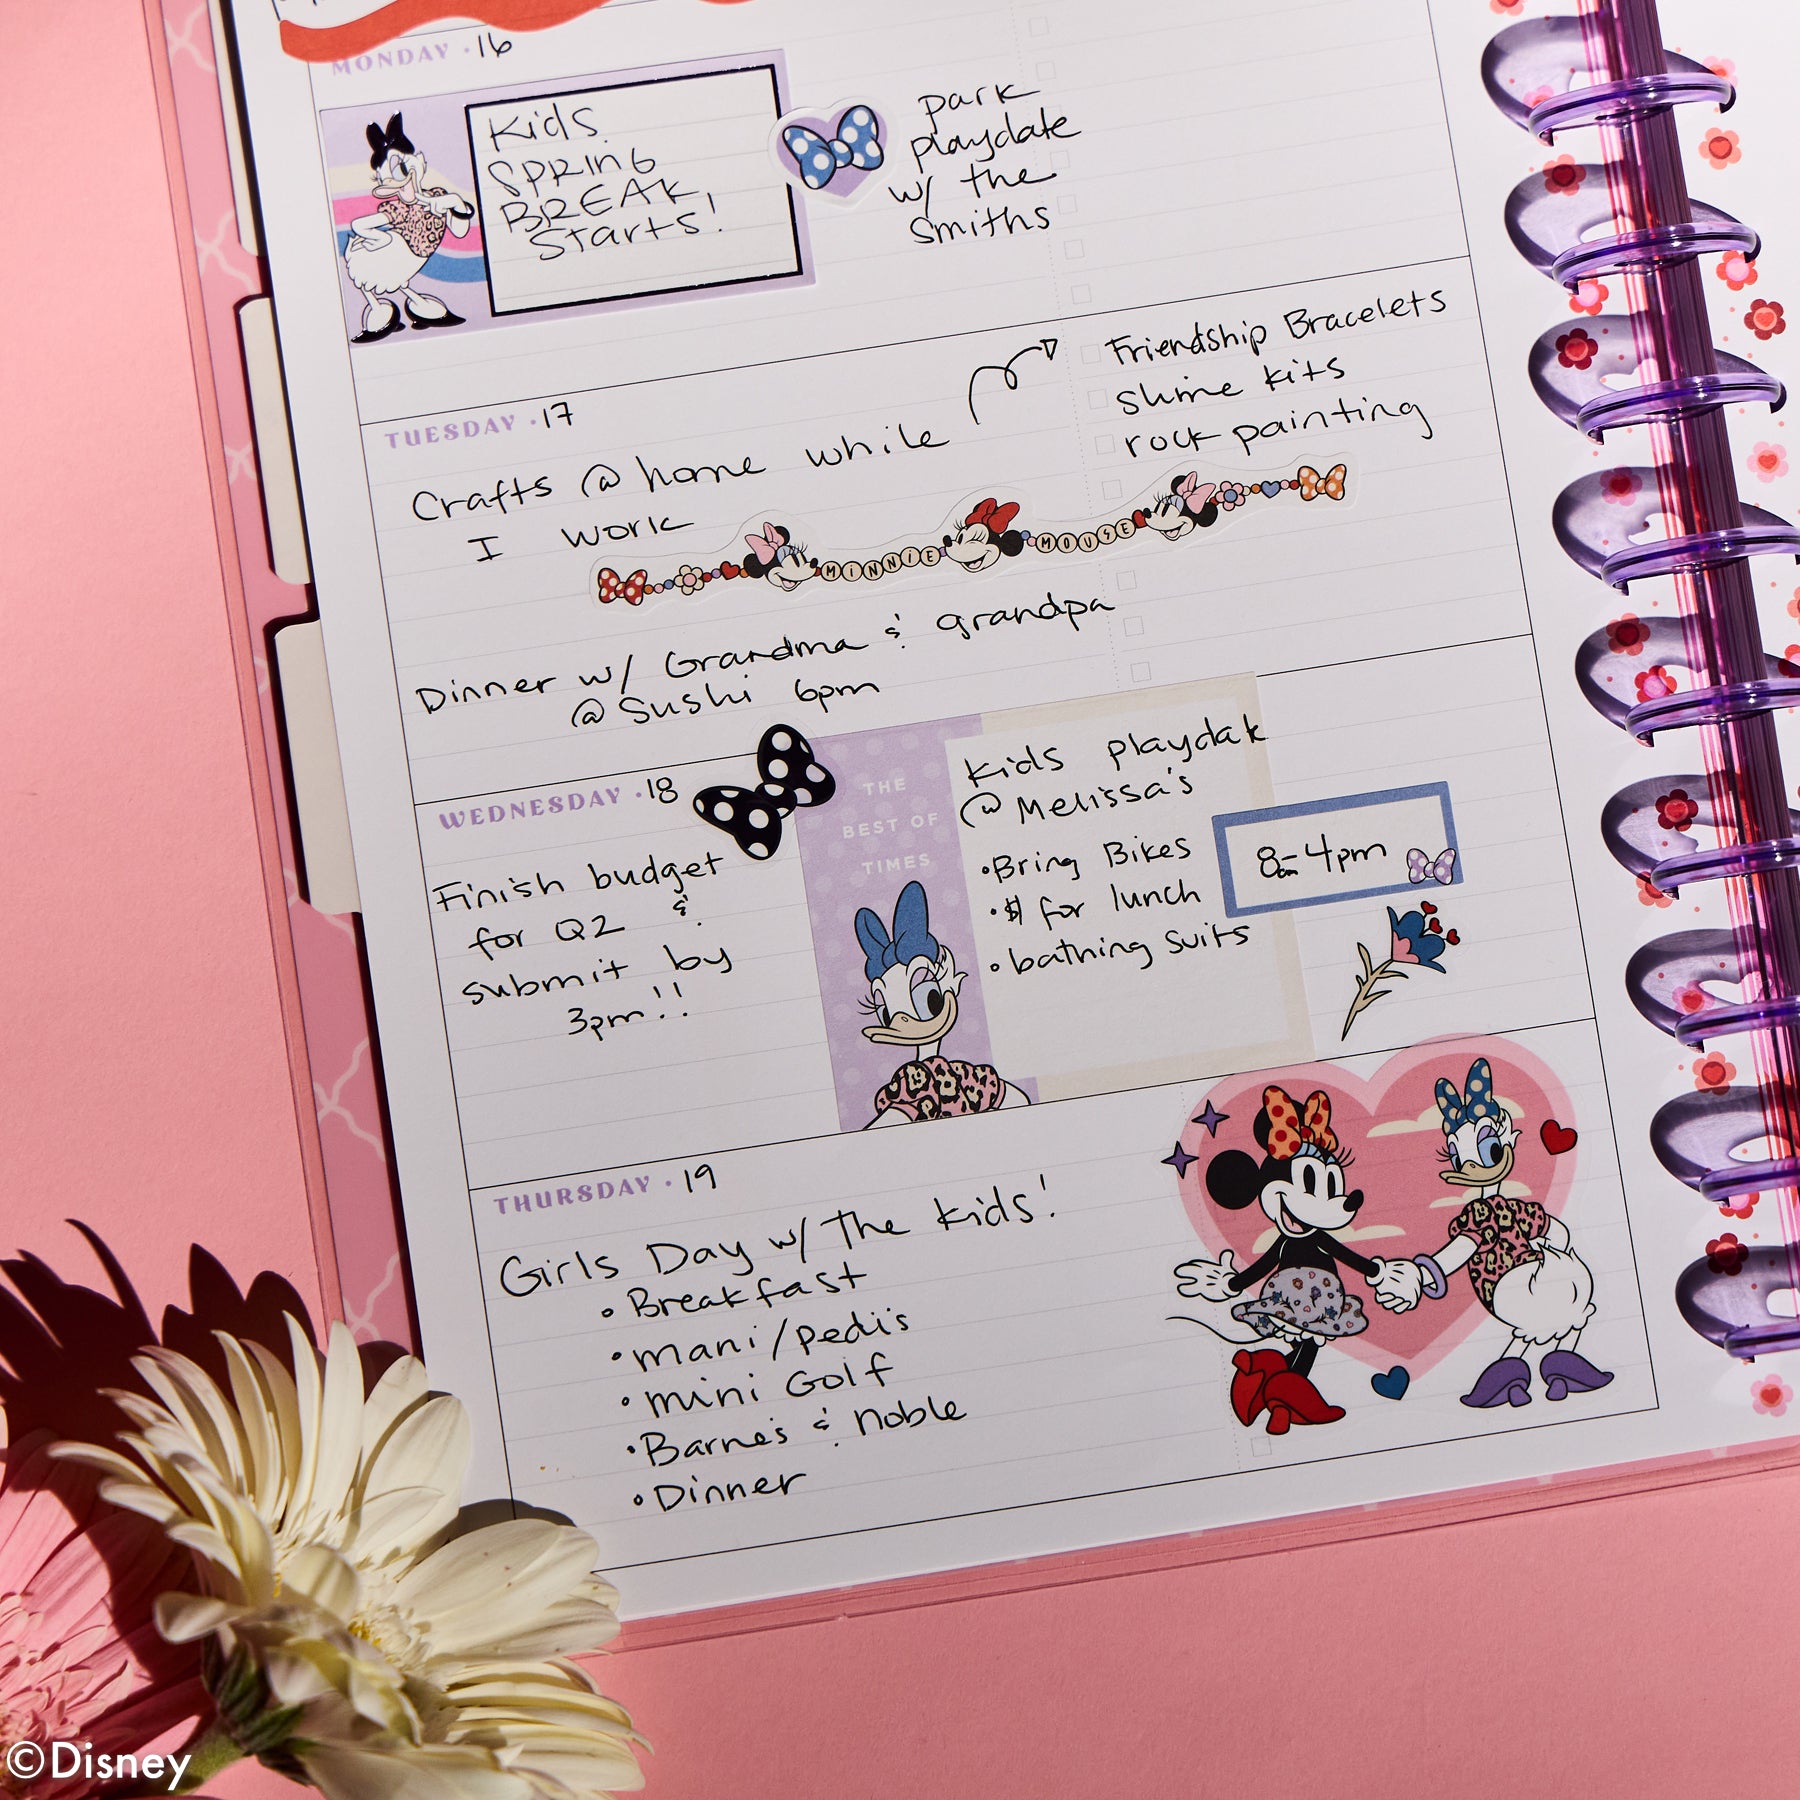 MONDAY · 16
Kids
SPRING
BREAK
Starts!
park
playdate
w/ the
Smiths
TUESDAY · 17
Crafts @ home while
I work
Friendship Bracelets
Slime kits
rock painting
MINNIE MOUSE
Dinner w/ Grandma & grandpa
@ Sushi 6pm
WEDNESDAY · 18
Finish budget
for Q2 &
submit by
3pm!!
THE
BEST OF
TIMES
Kids playdate
@ Melissa's
• Bring Bikes
• $ for lunch
• bathing suits
8am - 4pm
THURSDAY · 19
Girls Day w/ the kids!
• Breakfast
• mani/pedi's
• mini Golf
• Barnes & noble
• Dinner
©Disney